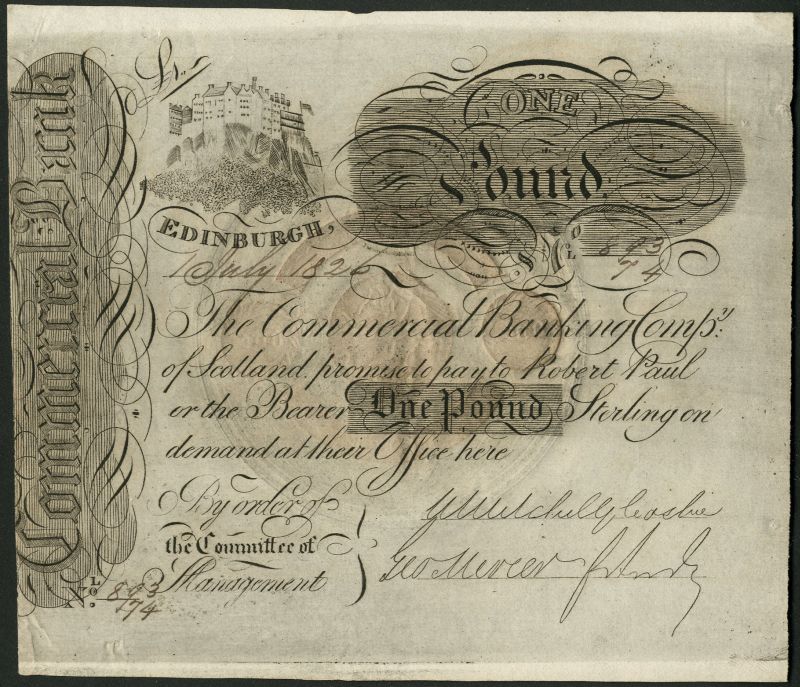 Commercial Bank
£1
ONE
Pound
EDINBURGH,
1 July 1826
The Commercial Banking Compy.
of Scotland, promise to pay to Robert Paul
or the Bearer One Pound Sterling on
demand at their Office here
By order of
the Committee of
Management
Geo Mercer